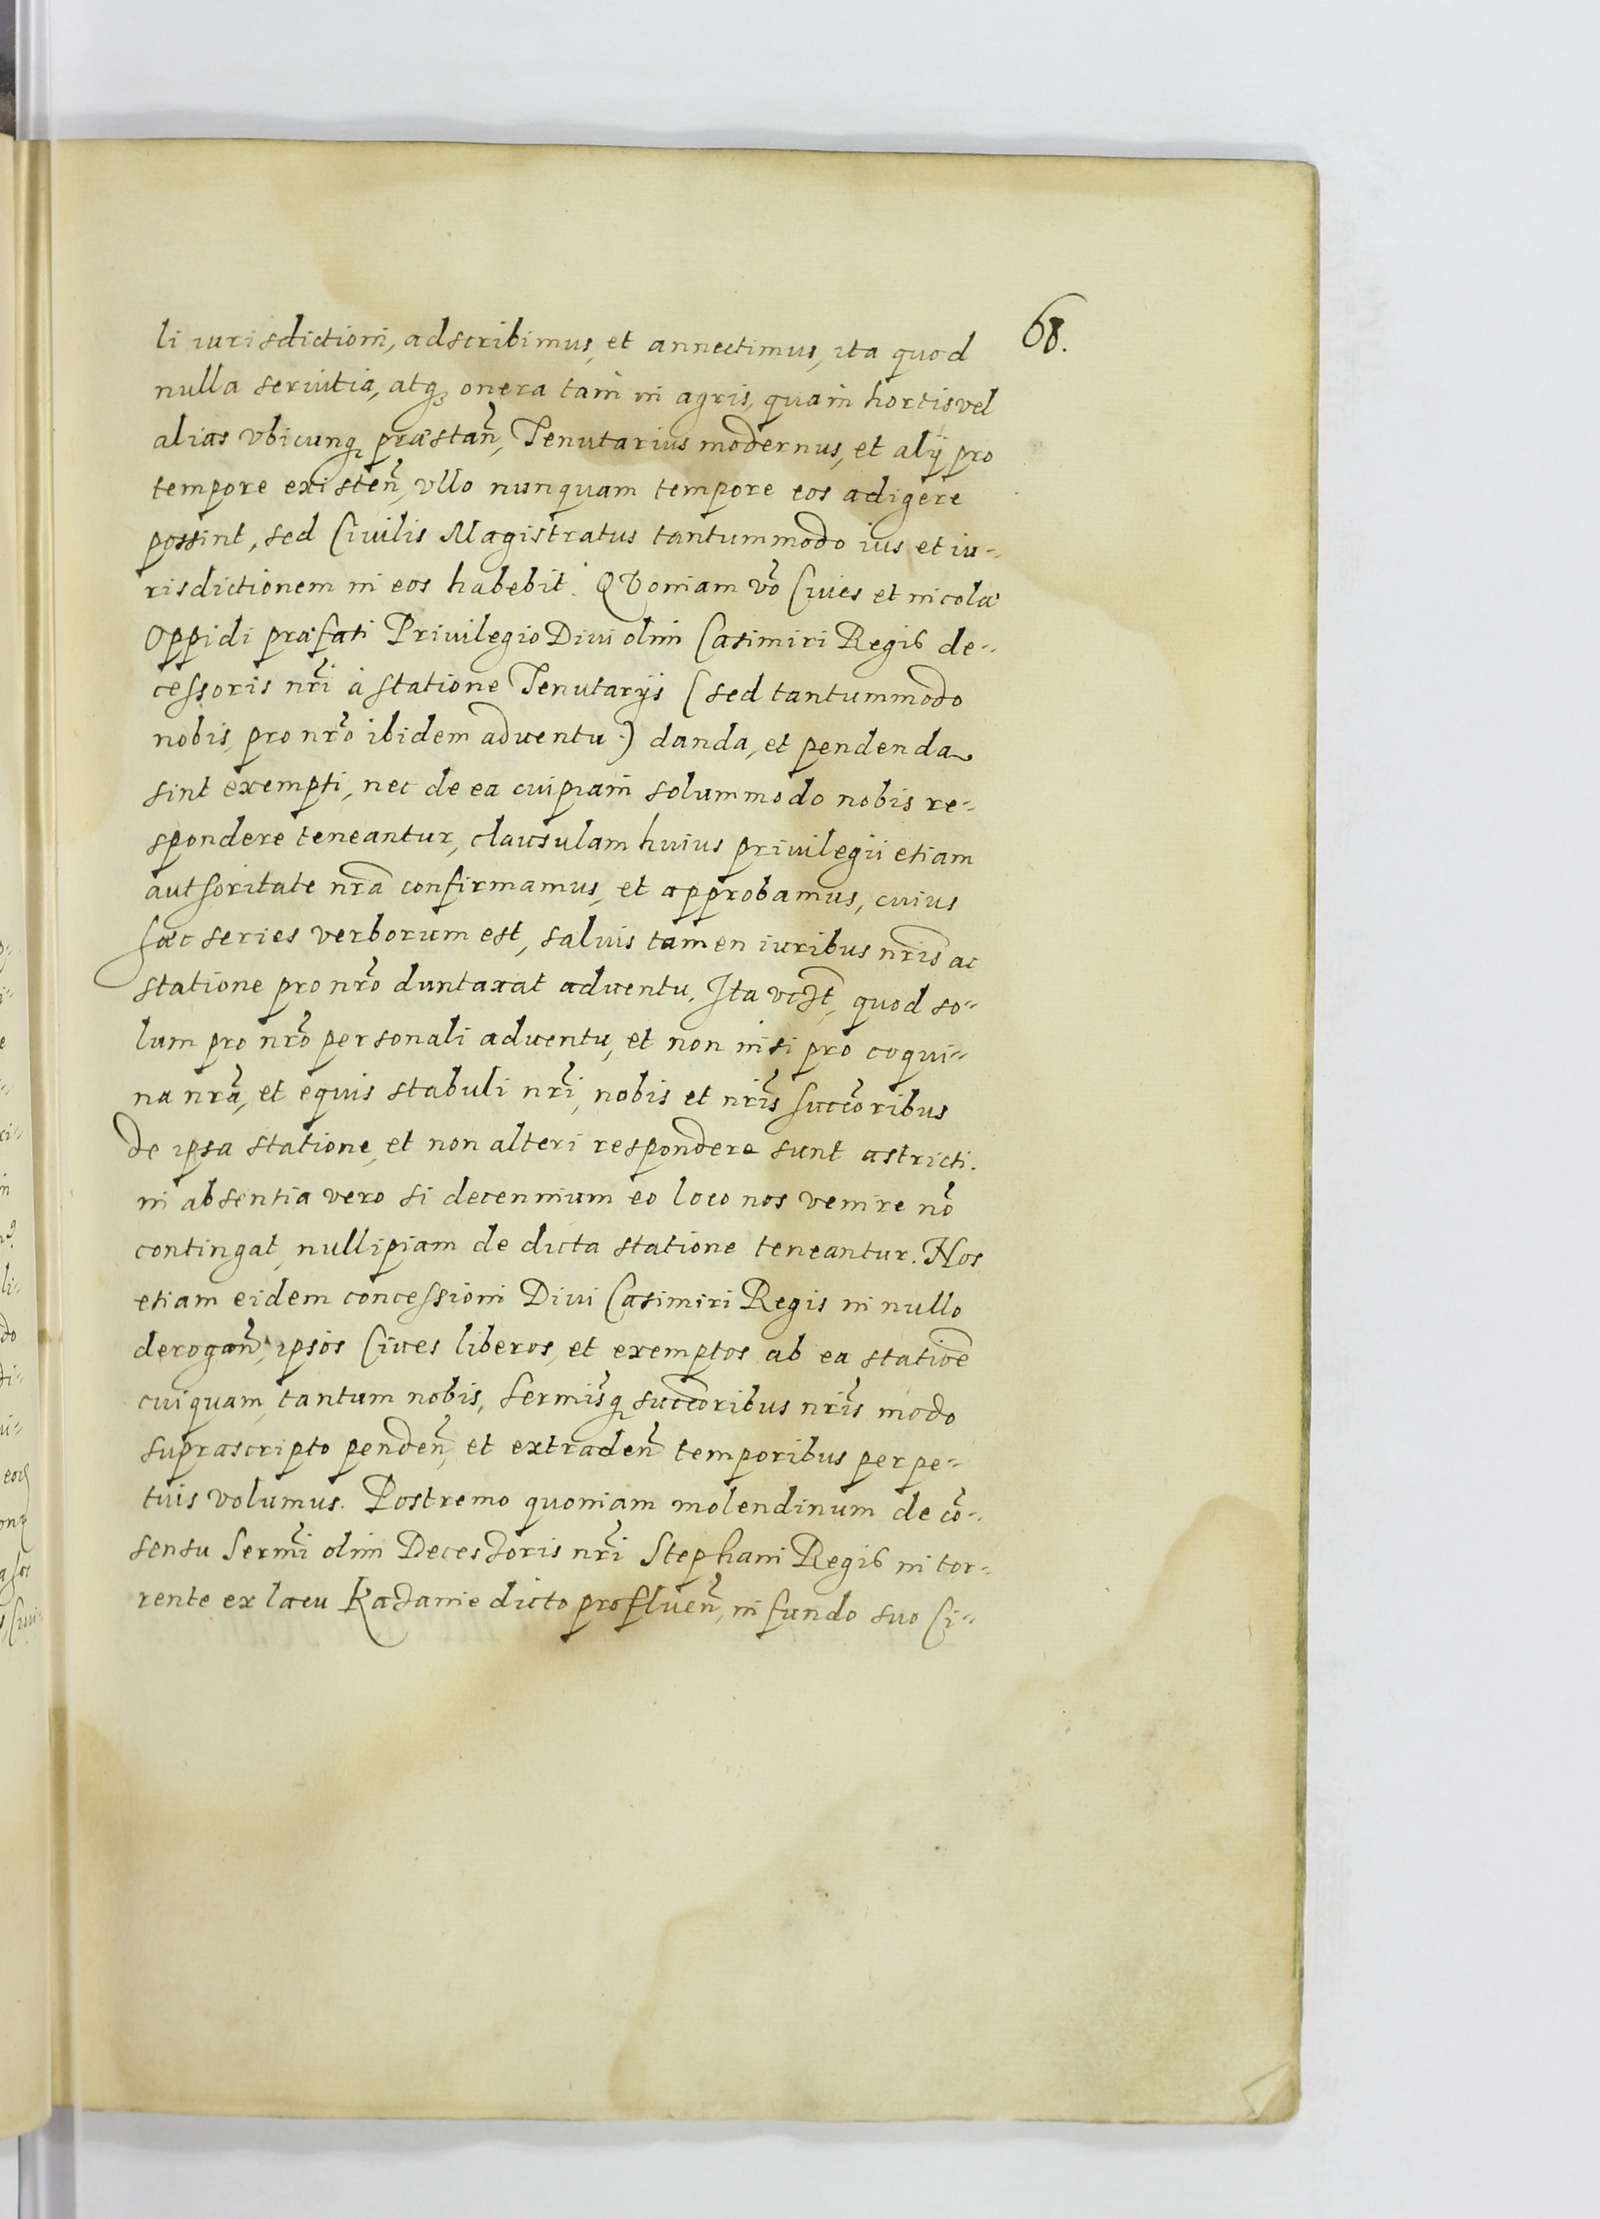 68.
li iurisdictioni, adscribimus, et annectimus, ita quod
nulla seruitia, atq₃ onera tam in agris, quam hortis vel
alias vbicunq₃ præstañ, Tenutarius modernus, et alij pro
tempore existeñ, vllo nunquam tempore eos adigere
possint, sed Ciuilis Magistratus tantummodo ius et iu-
risdictionem in eos habebit. QVoniam vō Ciues et incolæ
Oppidi præfati Priuilegio Diui olim Casimiri Regis de-
cessoris nr̃i à statione Tenutarijs (sed tantummodo
nobis, pro nr̃o ibidem aduentu) danda, et pendenda
sint exempti, nec de ea cuipiam solummodo nobis re-
spondere teneantur, clausulam huius priuilegii etiam
authoritate nr̃a confirmamus, et approbamus, cuius
hæc series verborum est, saluis tamen iuribus nr̃is ac
statione pro nr̃o duntaxat aduentu. Ita vcżt, quod so-
lum pro nr̃o personali aduentu, et non nisi pro coqui-
na nr̃a, et equis stabuli nr̃i, nobis et nr̃is succ̃oribus
de ipsa statione, et non alteri respondere sunt astricti.
in absentia vero si decennium eo loco nos venire nō
contingat, nullipiam de dicta statione teneantur. Nos
etiam eidem concessioni Diui Casimiri Regis in nullo
derogañ, ipsos Ciues liberos, et exemptos ab ea statiōe
cuiquam, tantum nobis, Serm̃isq₃ succ̃oribus nr̃is modo
suprascripto pendeñ, et extradeñ temporibus perpe-
tuis volumus. Postremo quoniam molendinum de cō-
sensu Serm̃i olim Decessoris nr̃i Stephani Regis in tor-
rente ex lacu Kadanie dicto profluen̄, in fundo suo Ci-